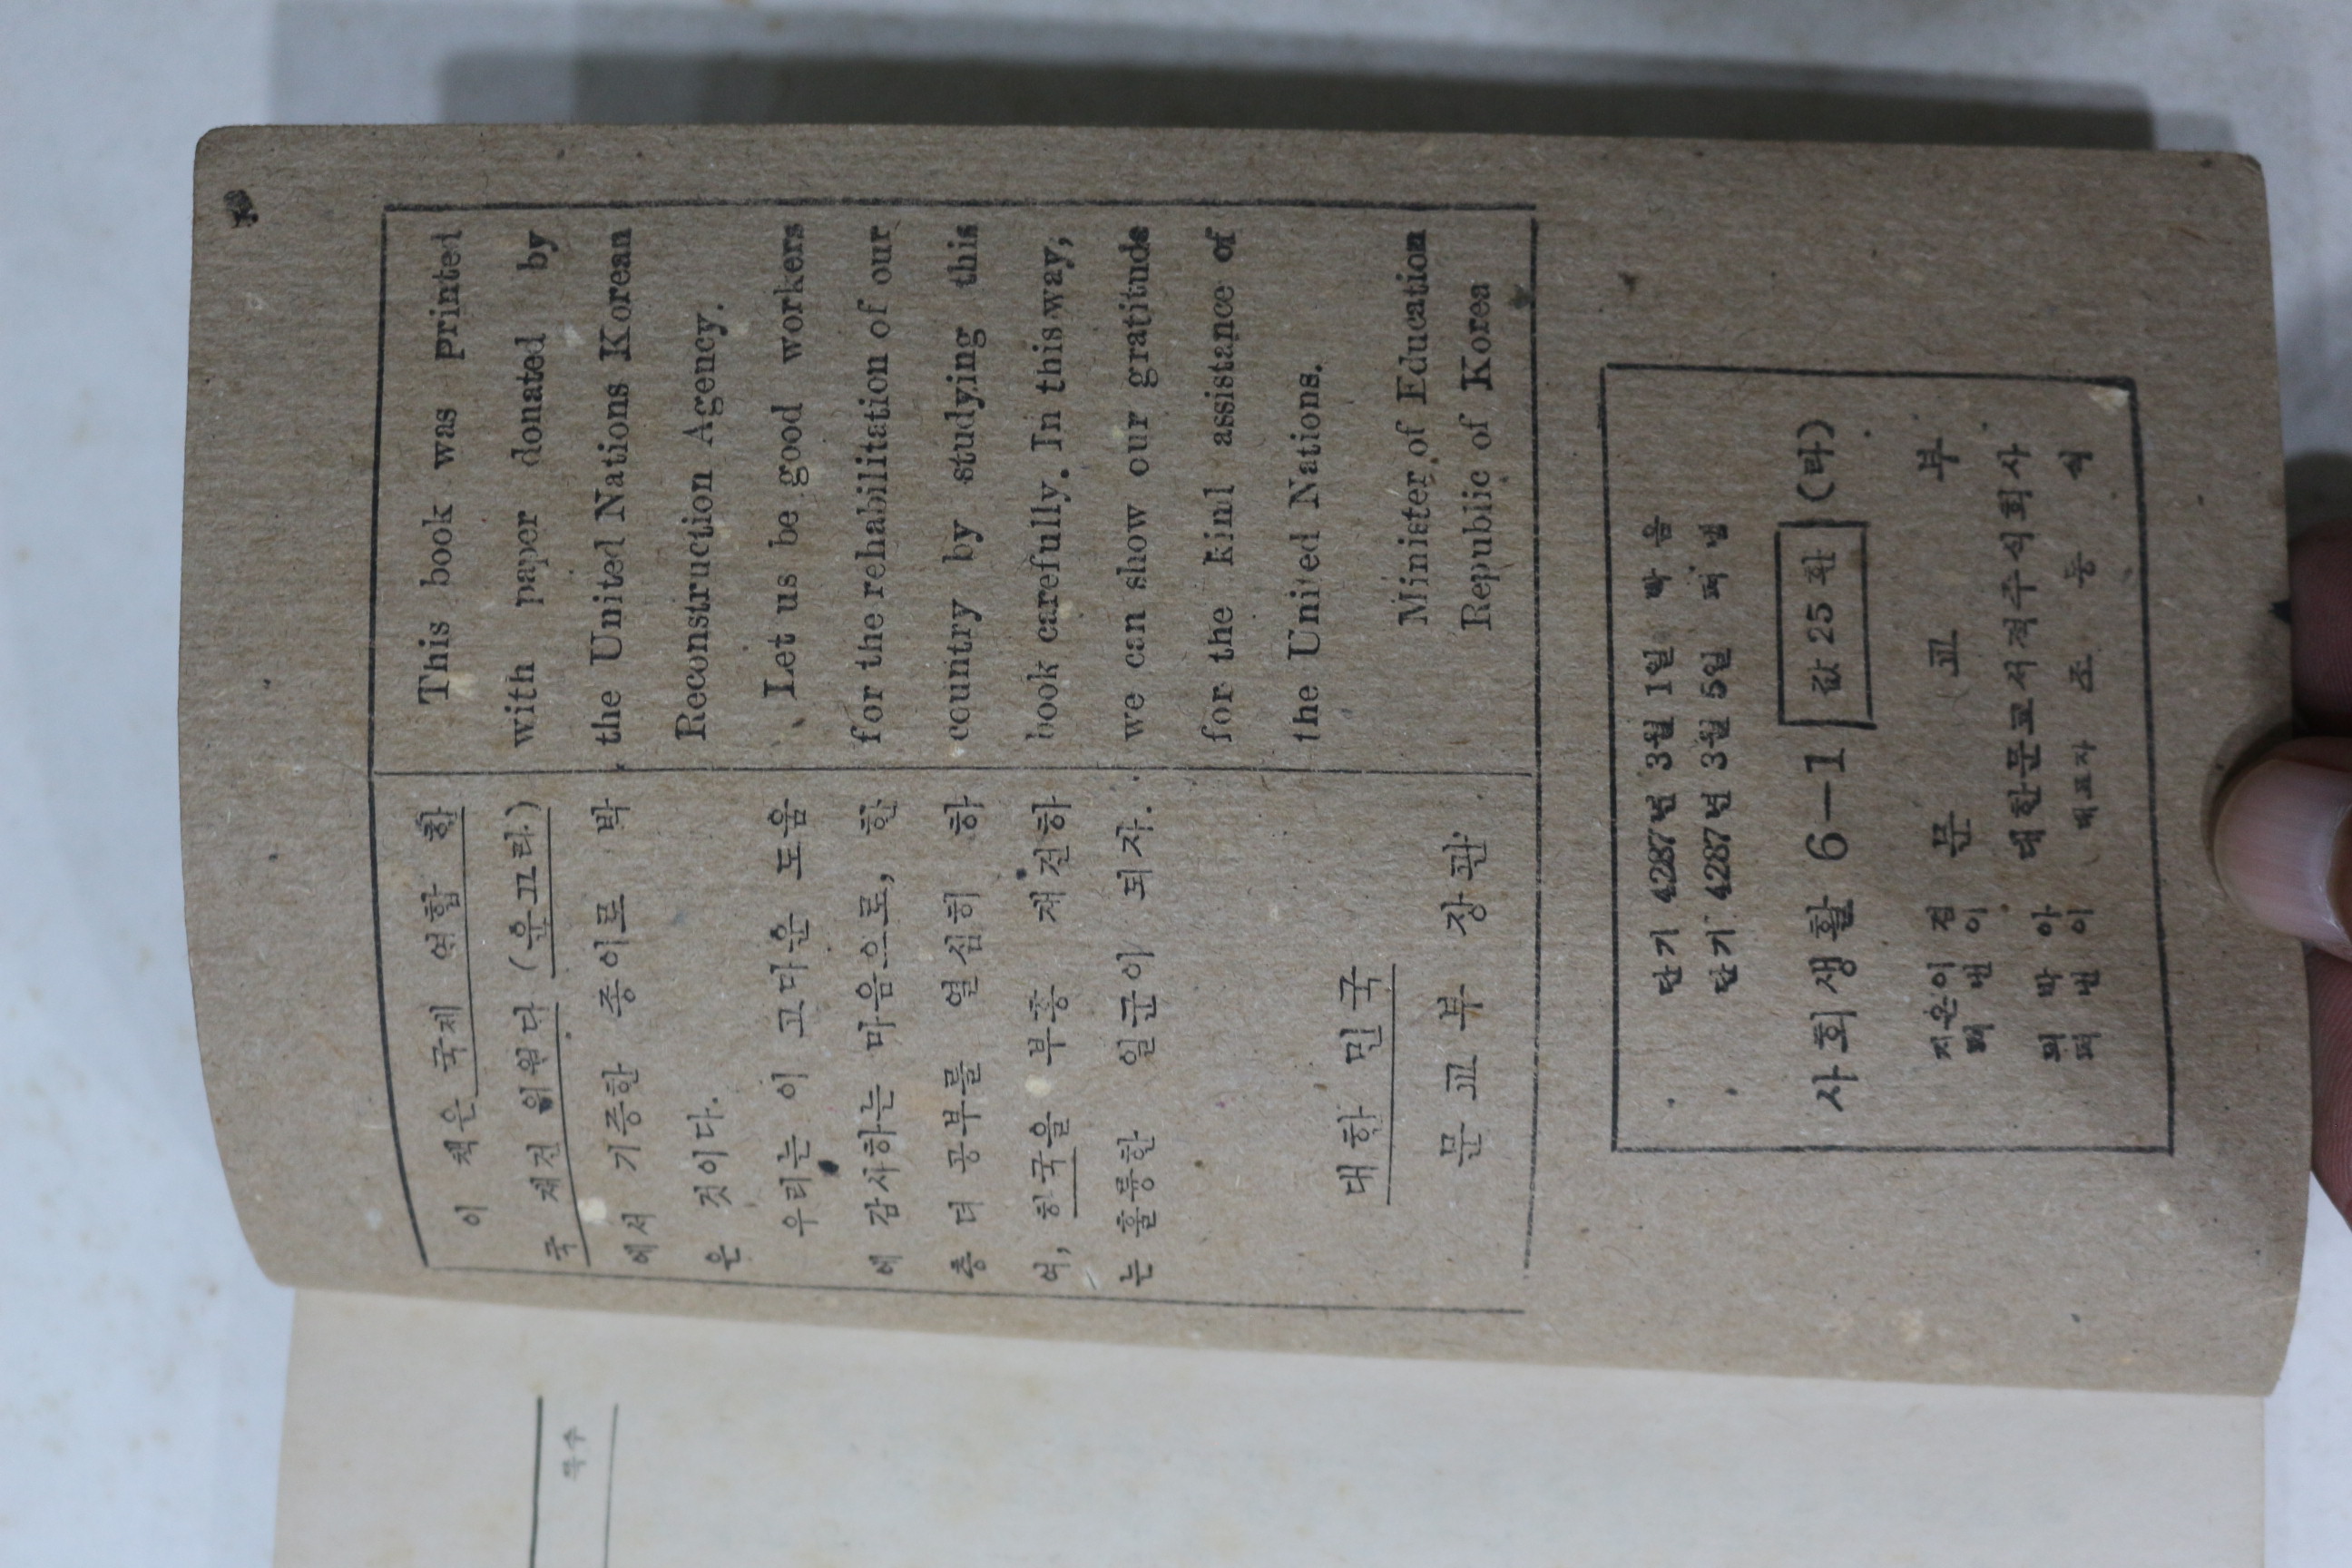 이 책은 국제 연합 한
국 재건 위원단 (운끄라)
에서 기증한 종이로 박
은 것이다.
우리는 이 고마운 도움
에 감사하는 마음으로, 한
층 더 공부를 열심히 하
여, 한국을 부흥 재건하
는 훌륭한 일군이 되자.
대한 민국
문교부 장관
This book was printed
with paper donated by
the United Nations Korean
Reconstruction Agency.
Let us be good workers
for the rehabilitation of our
country by studying this
book carefully. In this way,
we can show our gratitude
for the kind assistance of
the United Nations.
Minister of Education
Republic of Korea
단기 4287년 3월 1일 박음
단기 4287년 3월 5일 펴냄
사회생활 6—1 값 25 환 (라)
지은이 겸
펴낸이
문교부
박아
펴낸이
대한문교서적주식회사
대표자 조동식